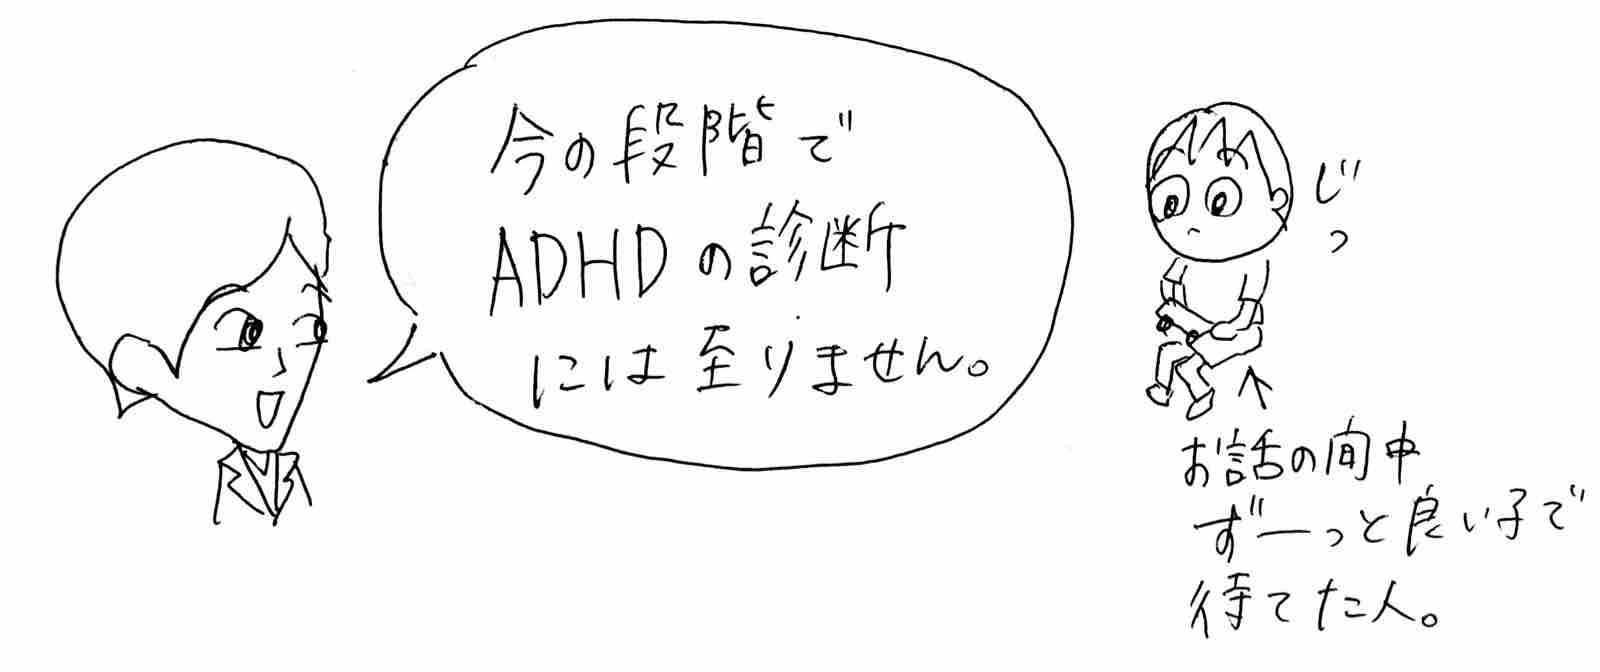 今の段階で
ADHDの診断
には至りません。
じっ
お話の間中
ずーっと良い子で
待てた人。